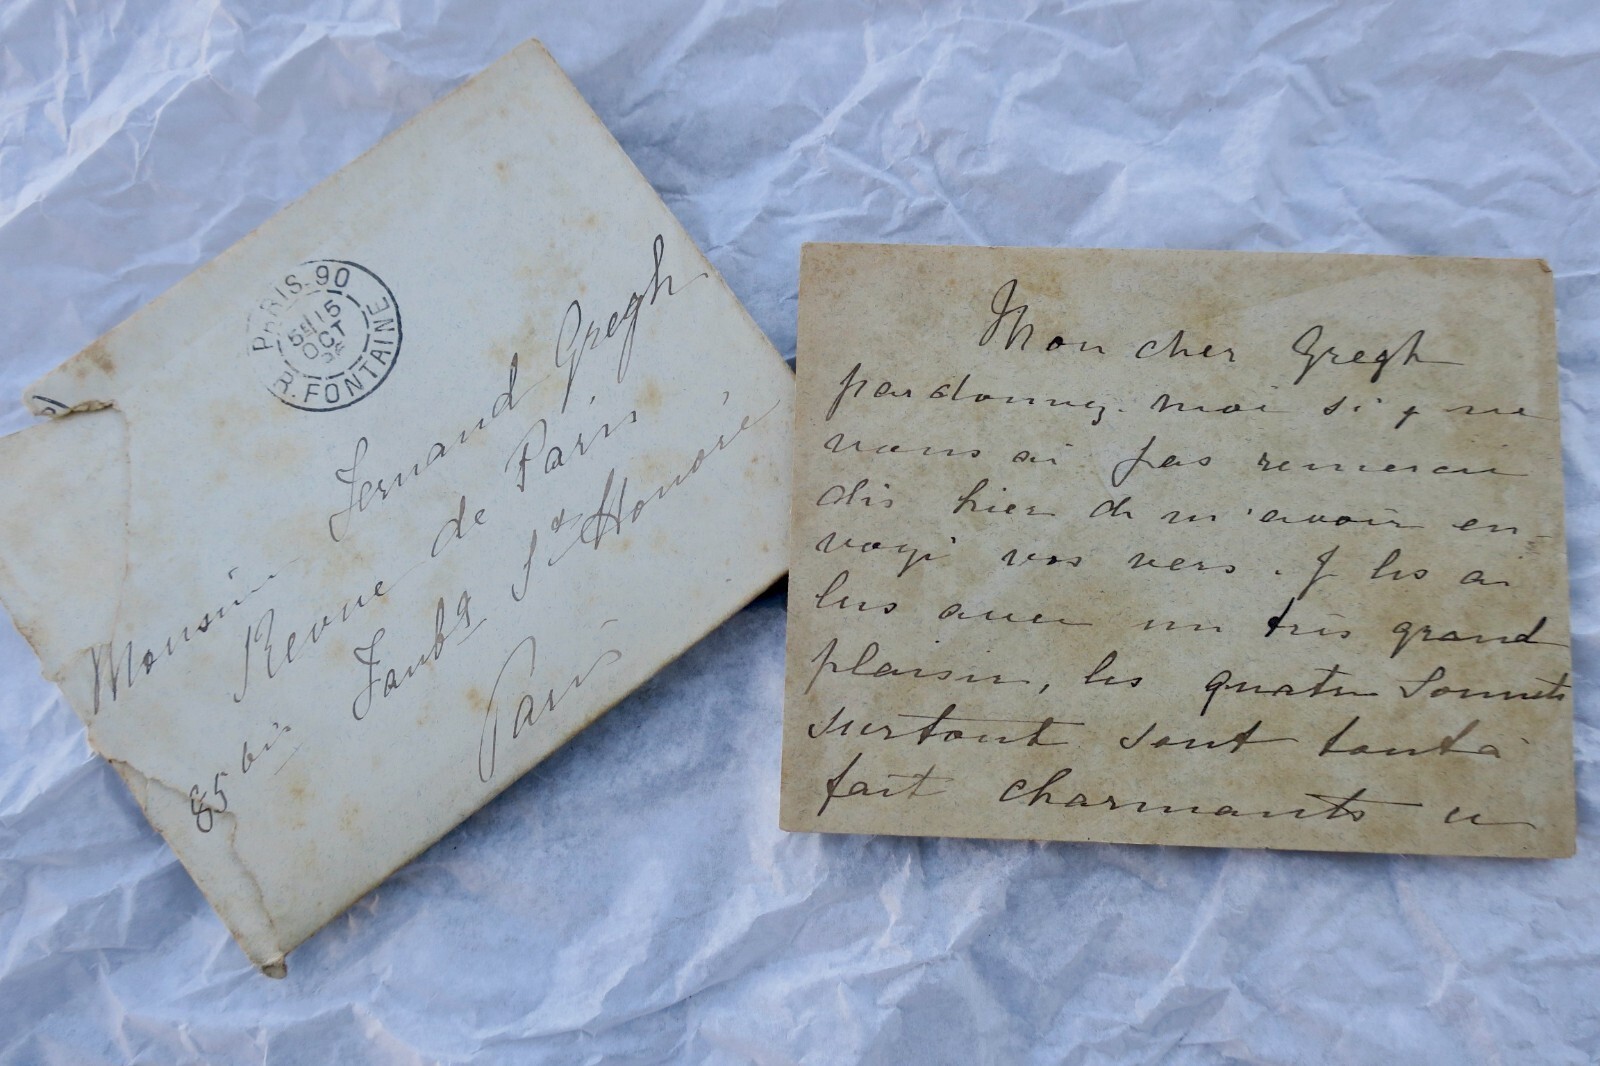 PARIS. 90
5E 15
OCT
96
R. FONTAINE
Monsieur Fernand Gregh
Revue de Paris
85 bis Faubg St Honoré
Paris
Mon cher Gregh
pardonnez-moi si je ne
vous ai pas remercié
dès hier de m'avoir en-
voyé vos vers. Je les ai
lus avec un très grand
plaisir, les quatre sonnets
surtout sont tout à
fait charmants et